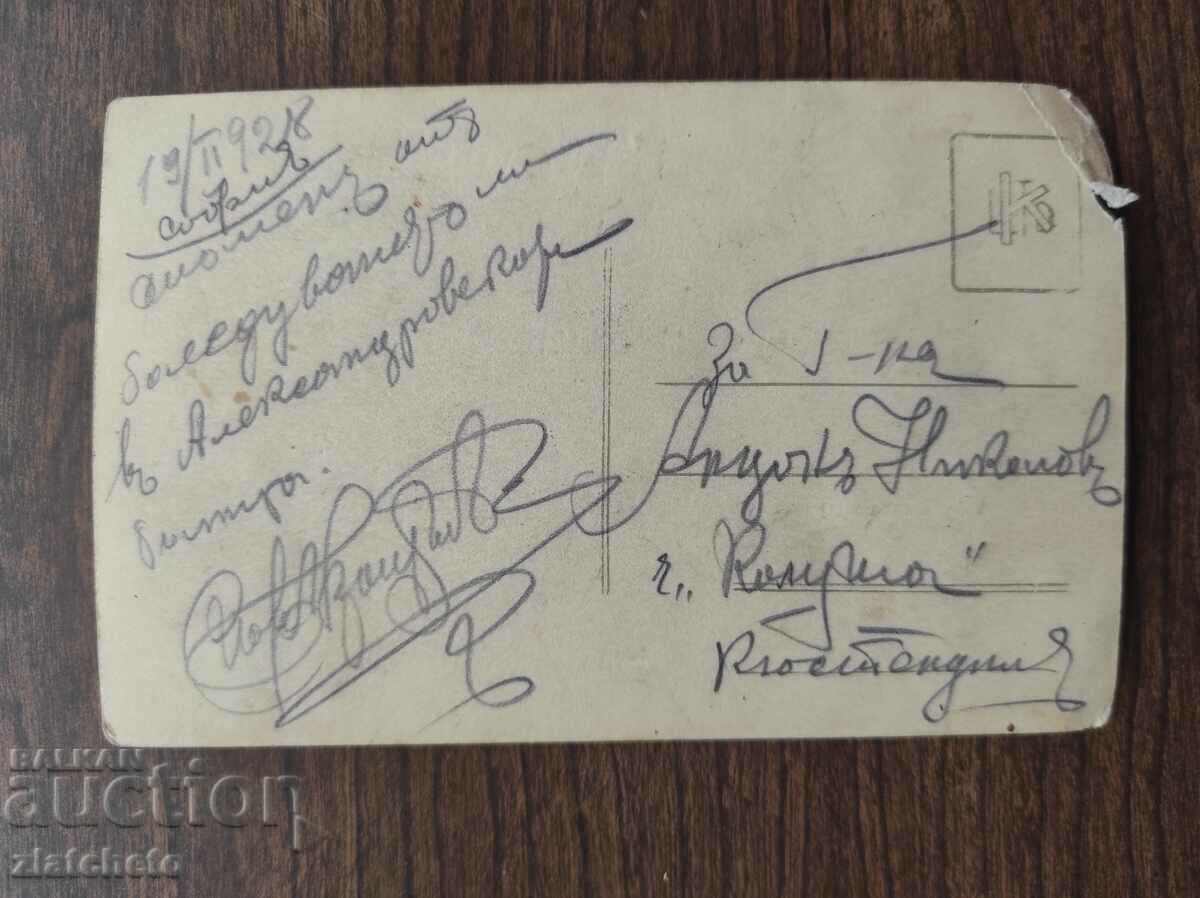 19/II 928
София
споменъ отъ
боледуванието ми
въ Александровската
болница.
За г-на
Андонъ Николовъ
с. „Колуша"
Кюстендилъ
BALKAN
auction
zlatcheto